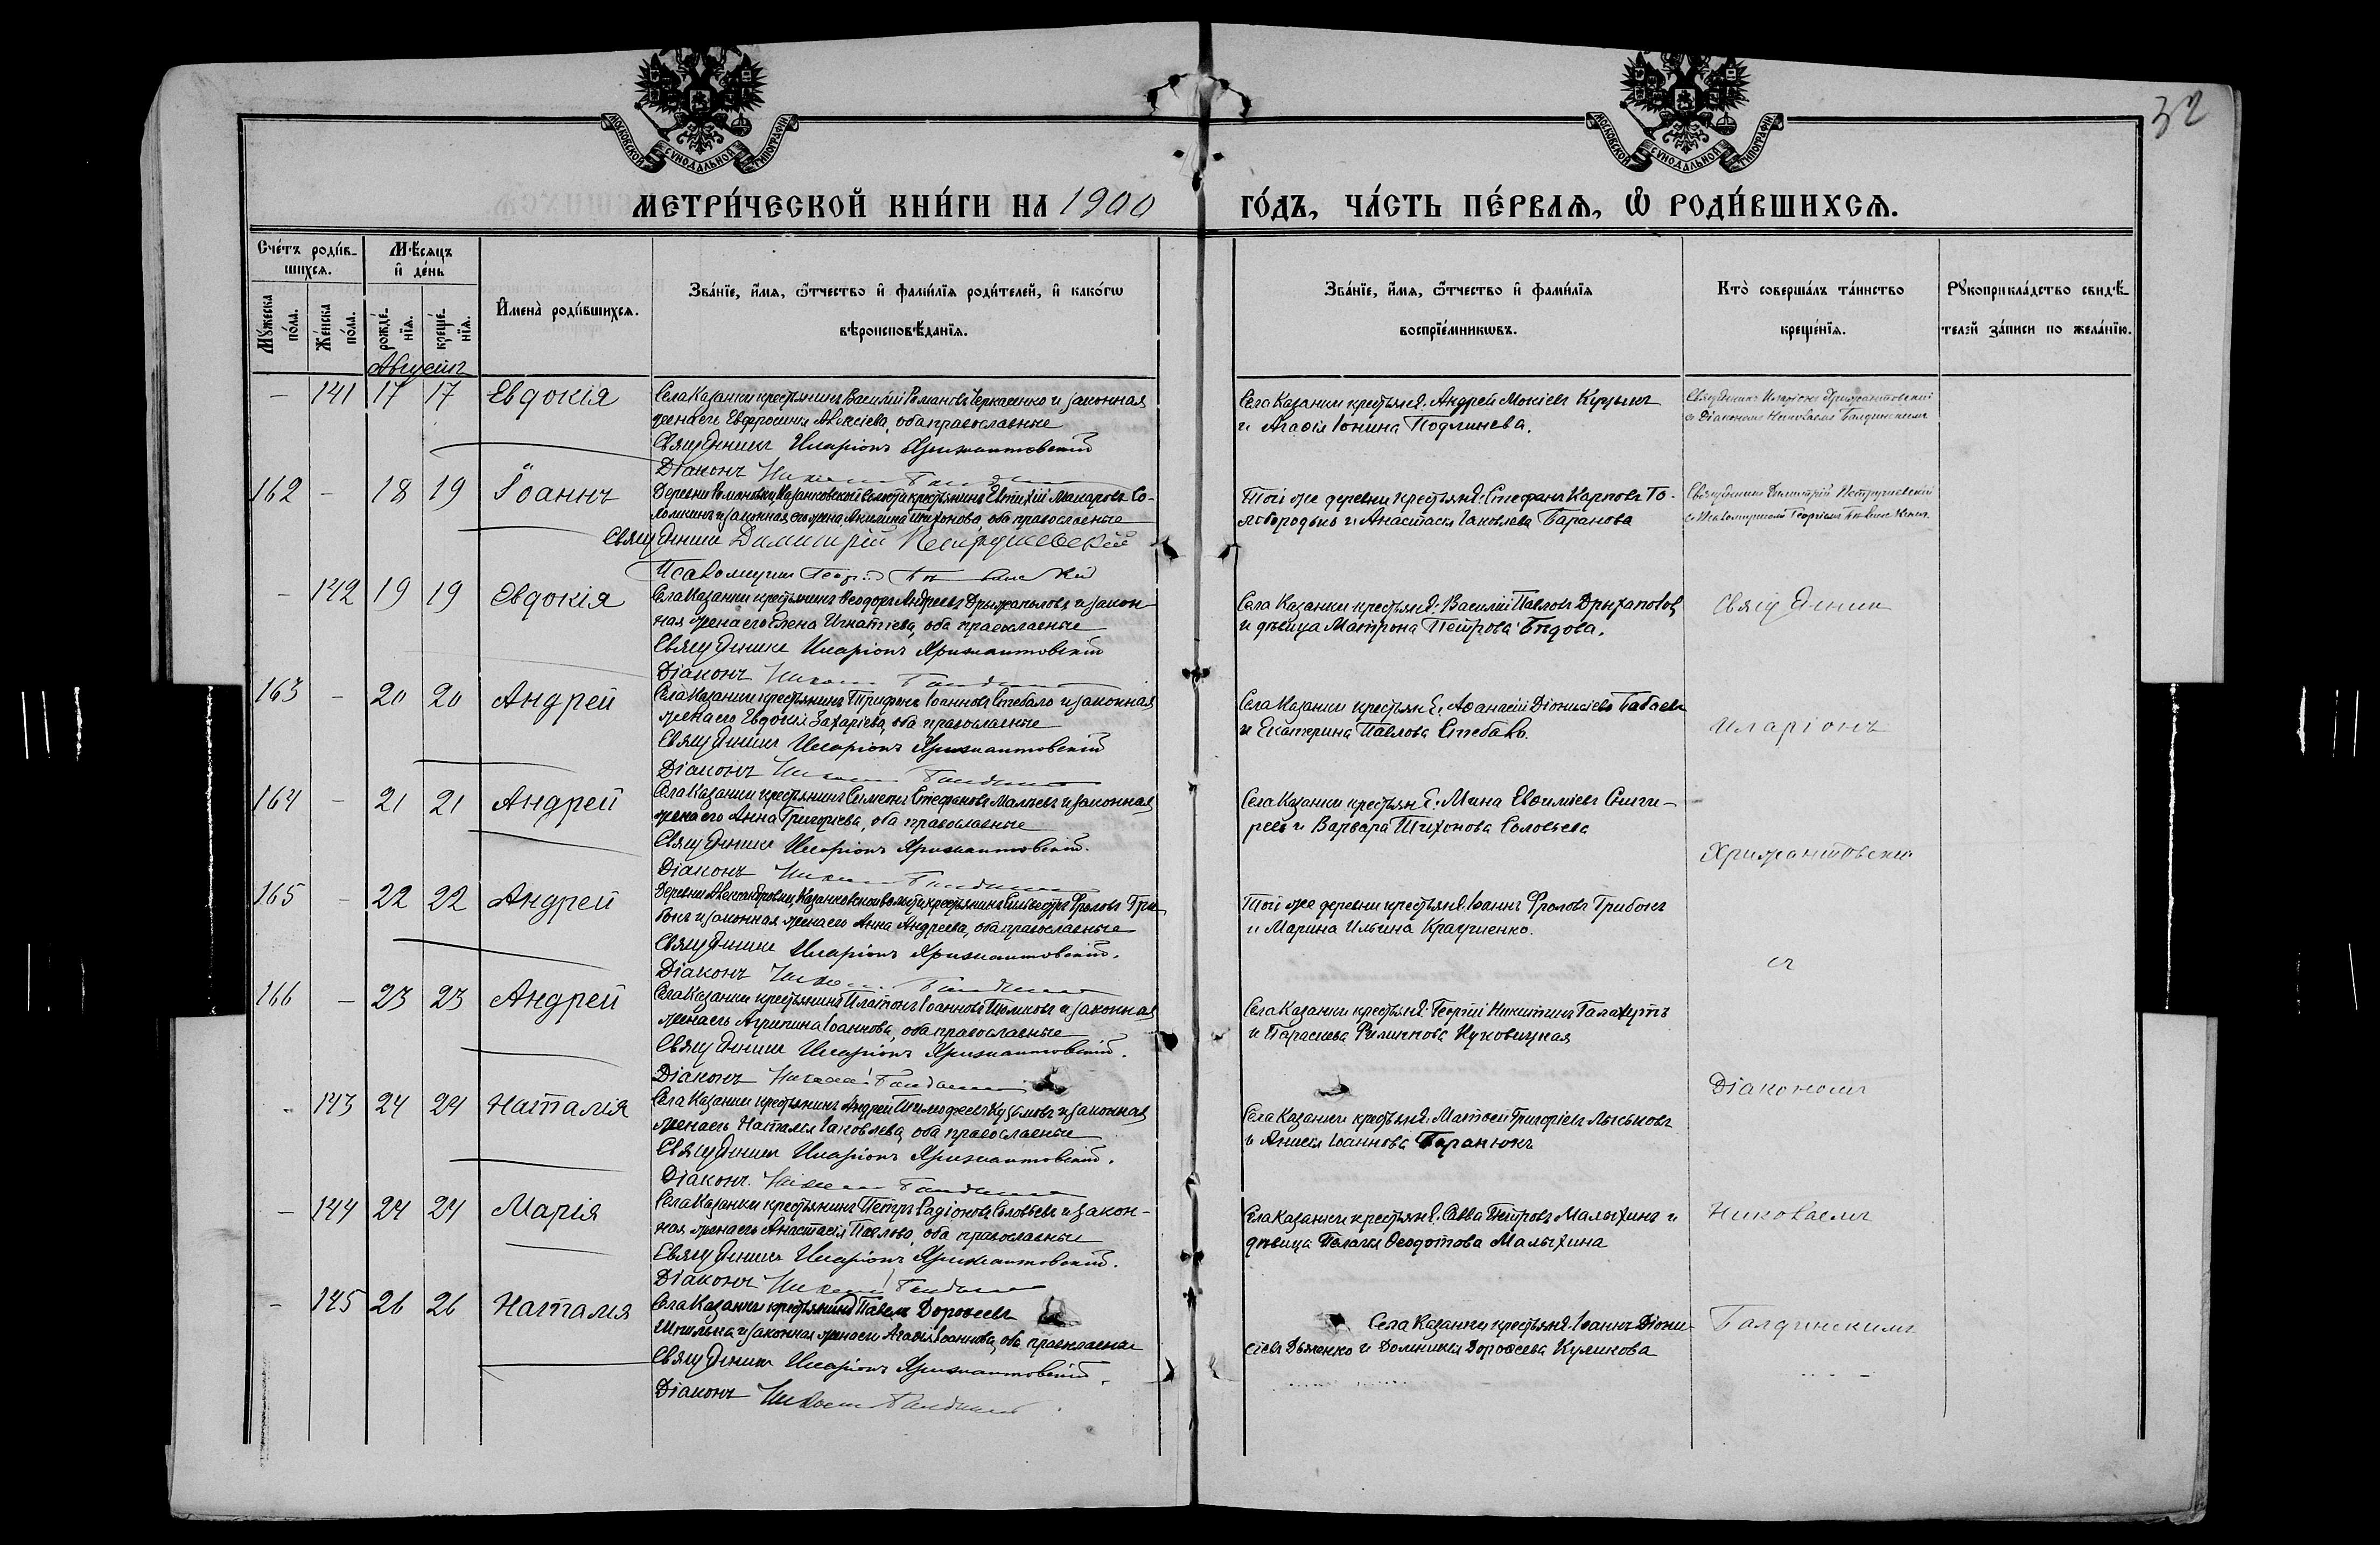 32
МОСКОВСКОЙ СѴНОДАЛЬНОЙ ТИПОГРАФІИ
МОСКОВСКОЙ СѴНОДАЛЬНОЙ ТИПОГРАФІИ
МЕТРИ́ЧЕСКОЙ КНИ́ГИ НА 1900 ГО́ДЪ, ЧА́СТЬ ПЕ́РВАѦ, Ѽ РОДИ́ВШИХСѦ.
Сче́тъ роди́в-
шихсѧ.
Мѣ́сѧцъ
и҆ де́нь
Мꙋ́жеска по́ла.
Же́нска по́ла.
рожде́-нїѧ.
креще́-нїѧ.
И҆мена̀ роди́вшихсѧ.
Зва́нїе, и҆́мѧ, ѻ҆́тчество и҆ фами́лїѧ роди́телей, и҆ како́гѡ
вѣроисповѣ́данїѧ.
Зва́нїе, и҆́мѧ, ѻ҆́тчество и҆ фами́лїѧ
воспрїе́мникѡвъ.
Кто̀ соверша́лъ та́инство
креще́нїѧ.
Рꙋкоприкла́дство свидѣ́-
телей за́писи по жела́нїю.
Августъ
– 141 17 17 Евдокія
Села Казанки крестьянинъ Василій Романовъ Черкасенко и законная
жена его Евфросинія Алексіева, оба православные
Священникъ Иларіонъ Хрижантовскій
Діаконъ
Села Казанки крестьяне: Андрей Мокіевъ Куцынъ
и Агафія Іонина Подлинева.
Священникъ Иларіонъ Хрижантовскій
съ Діакономъ Николаемъ Балдинскимъ
162 – 18 19 Іоаннъ
Деревни Романовки Казанковской волости крестьянинъ Евтихій Макаровъ Со-
ломкинъ и законная его жена Акилина Тихонова, оба православные
Священникъ Димитрій Петрушевскій
Псаломщикъ
Той же деревни крестьяне: Стефанъ Карповъ Го-
лобородько и Анастасія Іаковлева Баранова
Священникъ Димитрій Петрушевскій
съ Псаломщикомъ Георгіемъ
– 142 19 19 Евдокія
Села Казанки крестьянинъ Ѳеодоръ Андреевъ Дрыжаполовъ и закон-
ная жена его Елена Игнатіева, оба православные
Священникъ Иларіонъ Хрижантовскій
Діаконъ
Села Казанки крестьяне: Василій Павловъ Дрыжаполовъ
и дѣвица Матрона Петрова Бѣдова.
Священник
163 – 20 20 Андрей
Села Казанки крестьянинъ Трифонъ Іоанновъ Стебало и законная
жена его Евдокія Захаріева, оба православные
Священникъ Иларіонъ Хрижантовскій
Діаконъ
Села Казанки крестьяне: Аѳанасій Діонисіевъ Бабаевъ
и Екатерина Павлова Стебало.
Иларіонъ
164 – 21 21 Андрей
Села Казанки крестьянинъ Симеонъ Стефановъ Малѣевъ и законная
жена его Анна Григоріева, оба православные
Священникъ Иларіонъ Хрижантовскій.
Діаконъ
Села Казанки крестьяне: Мина Евѳиміевъ Снеги-
ревъ и Варвара Тихонова Соловьева
Хрижантовскій
165 – 22 22 Андрей
Деревни Александровки, Казанковской волости крестьянинъ Сильвестръ Фроловъ Гри-
бонъ и законная жена его Анна Андреева, оба православные
Священникъ Иларіонъ Хрижантовскій.
Діаконъ
Той же деревни крестьяне: Іоаннъ Фроловъ Грибонъ
и Марина Ильина Кравченко.
съ
166 – 23 23 Андрей
Села Казанки крестьянинъ Платонъ Іоанновъ Поляковъ и законная
жена его Агрипина Іоаннова, оба православные
Священникъ Иларіонъ Хрижантовскій.
Діаконъ
Села Казанки крестьяне: Георгій Никитинъ Галахутъ
и Параскева Филиппова Нуковицкая
Діакономъ
– 143 24 24 Наталія
Села Казанки крестьянинъ Андрей Тимофеевъ Кузьмовъ и законная
жена его Наталія Іаковлева, оба православные
Священникъ Иларіонъ Хрижантовскій.
Діаконъ
Села Казанки крестьяне: Матѳей Григоріевъ Лыськовъ
и Анисія Іоаннова Баранюкъ
– 144 24 24 Марія
Села Казанки крестьянинъ Петръ Родіоновъ Соловьевъ и закон-
ная жена его Анастасія Павлова, оба православные
Священникъ Иларіонъ Хрижантовскій.
Діаконъ
Села Казанки крестьяне: Савва Петровъ Малыхинъ и
дѣвица Пелагія Ѳеодотова Малыхина
Николаемъ
– 145 26 26 Наталія
Села Казанки крестьянинъ Павелъ Дороѳеевъ
Шпилька и законная жена его Агафія Іоаннова, оба православные
Священникъ Иларіонъ Хрижантовскій.
Діаконъ
Села Казанки крестьяне: Іоаннъ Діони-
сіевъ Дьяченко и Домникія Дороѳеева Куликова
Балдинскимъ